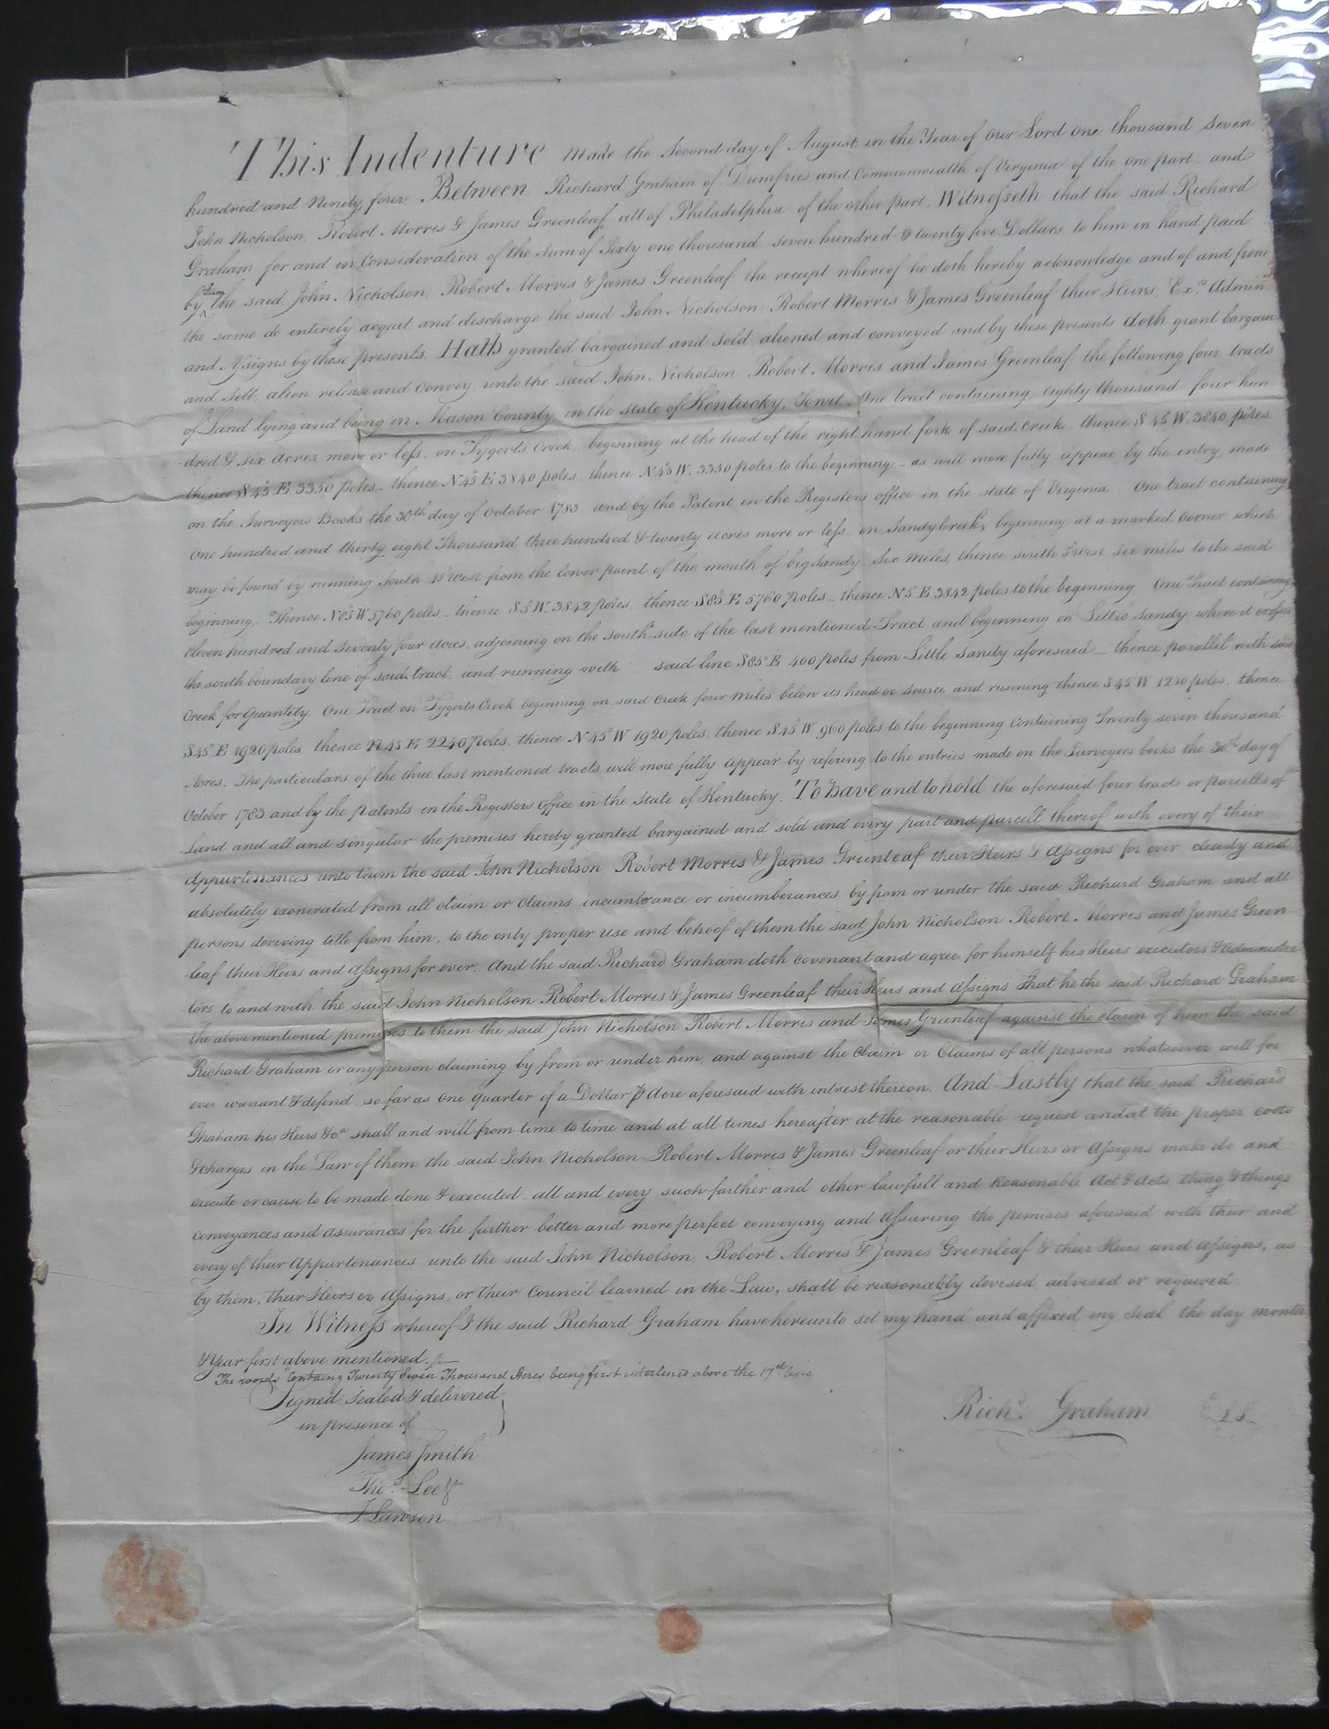 This Indenture Made the Second day of August in the Year of Our Lord One thousand Seven
hundred and Ninety four, Between Richard Graham of Dumfries and Commonwealth of Virginia of the one part and
John Nicholson, Robert Morris & James Greenleaf all of Philadelphia of the other part. Witnesseth that the said Richard
Graham for and in Consideration of the Sum of Sixty one thousand seven hundred & twenty five Dollars to him in hand paid
by them the said John Nicholson, Robert Morris & James Greenleaf the receipt whereof he doth hereby acknowledge and of and from
the same do entirely acquit and discharge the said John Nicholson Robert Morris & James Greenleaf their Heirs, Exrs Admin
and Assigns by these presents. Hath granted bargained and sold, aliened and conveyed and by these presents doth grant bargain
and sell, alien release and Convey unto the said John Nicholson Robert Morris and James Greenleaf the following four tracts
of Land lying and being in Mason County in the state of Kentucky, To wit. One tract containing eighty thousand four hun
dred & six acres more or less, on Tygerts Creek, beginning at the head of the right hand fork of said Creek thence S 45 W. 3840 poles
thence S 45 E 3350 poles thence N 45 E 3840 poles, thence N 45 W. 3350 poles, to the beginning as will more fully appear by the entry made
on the Surveyors Books the 30th day of October 1783 and by the Patent in the Registers office in the state of Virginia One tract containing
One hundred and thirty eight Thousand three hundred & twenty acres more or less on Sandy Creek, beginning at a marked Corner which
may be found by running South 45 west from the lower point of the mouth of big Sandy Six Miles, thence south West six miles to the said
beginning Thence N 85 W 5760 poles thence S 5 W. 3842 poles, thence S 85 E 5760 poles thence N 5 E 3842 poles to the beginning One Tract containing
Eleven hundred and seventy four acres adjoining on the south side of the last mentioned Tract and beginning on Little Sandy where it crosses
the south boundary line of said tract, and running with said line S 85 E 400 poles from Little Sandy aforesaid thence parallel with said
Creek for Quantity One Tract on Tygerts Creek beginning on said Creek four Miles below its head or source and running thence S 45 W 1280 poles, thence
S 45 E 1920 poles, thence N 45 E 2240 poles, thence N 45 W 1920 poles, thence S 45 W 960 poles to the beginning Containing Twenty seven thousand
Acres. The particulars of the three last mentioned tracts will more fully appear by refering to the entries made on the Surveyors books the 30th day of
October 1783 and by the patents in the Registers Office in the State of Kentucky. To have and to hold the aforesaid four tracts or parcells of
Land and all and singular the premises hereby granted bargained and sold and every part and parcell thereof with every of their
Appurtenances unto them the said John Nicholson Robert Morris & James Greenleaf their Heirs & Assigns for ever clearly and
absolutely exonerated from all claim or Claims incumbrance or incumberances by from or under the said Richard Graham and all
persons deriving title from him, to the only proper use and behoof of them the said John Nicholson Robert Morris and James Green
leaf their Heirs and Assigns for ever. And the said Richard Graham doth covenant and agree for himself his Heirs executors & Administra
tors to and with the said John Nicholson Robert Morris & James Greenleaf their Heirs and Assigns that he the said Richard Graham
the above mentioned premises to them the said John Nicholson Robert Morris and James Greenleaf against the claim of him the said
Richard Graham or any person claiming by from or under him, and against the Claim or Claims of all persons whatsoever will for
ever warrant & defend, so far as One quarter of a Dollar P Acre aforesaid with intrest thereon. And Lastly that the said Richard
Graham his Heirs &ca shall and will from time to time and at all times hereafter at the reasonable request and at the proper costs
& charges in the Law of them the said John Nicholson Robert Morris & James Greenleaf or their Heirs or Assigns make do and
execute or cause to be made done & executed all and every such farther and other lawfull and Reasonable Act & Acts thing & things
conveyances and Assurances for the farther better and more perfect conveying and Assuring the premises aforesaid with their and
every of their Appurtenances unto the said John Nicholson, Robert Morris & James Greenleaf & their Heirs and Assigns, as
by them, their Heirs or Assigns, or their Council learned in the Law, shall be reasonably devised, advised or required.
In Witness whereof I the said Richard Graham have hereunto set my hand and affixed my Seal the day month
& Year first above mentioned.
The words Containg Twenty Seven Thousand Acres being first interlined above the 17th line
Signed Sealed & delivered
in presence of
James Smith
Thos. Lee
J Lawson
Richd. Graham LS